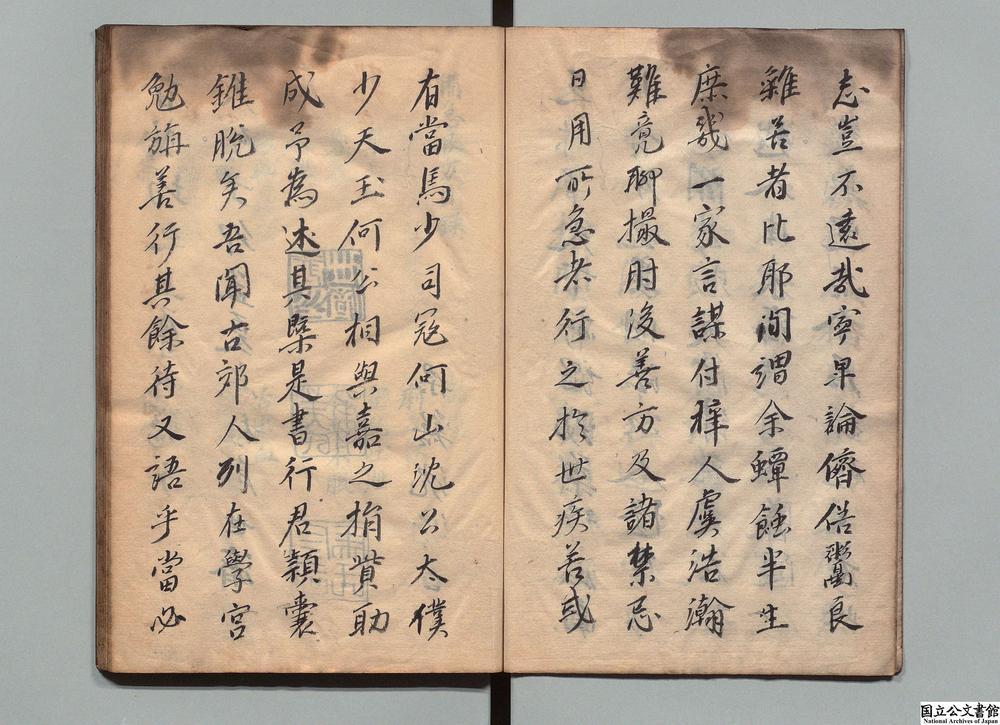 志豈不遠哉寧早論儕俗鬻良
雜苦者比耶間謂余蟫蝕半生
庶幾一家言謀付梓人虞浩瀚
難竟聊撮肘後善方及諸禁忌
日用所急者行之於世疾苦或
有當焉少司寇何山沈公太僕
少天玉何公相與嘉之捐貲助
成予為述其槩是書行君穎囊
錐脫矣吾聞古郊人列在學宮
勉旃善行其餘待又語乎當必
国立公文書館
National Archives of Japan